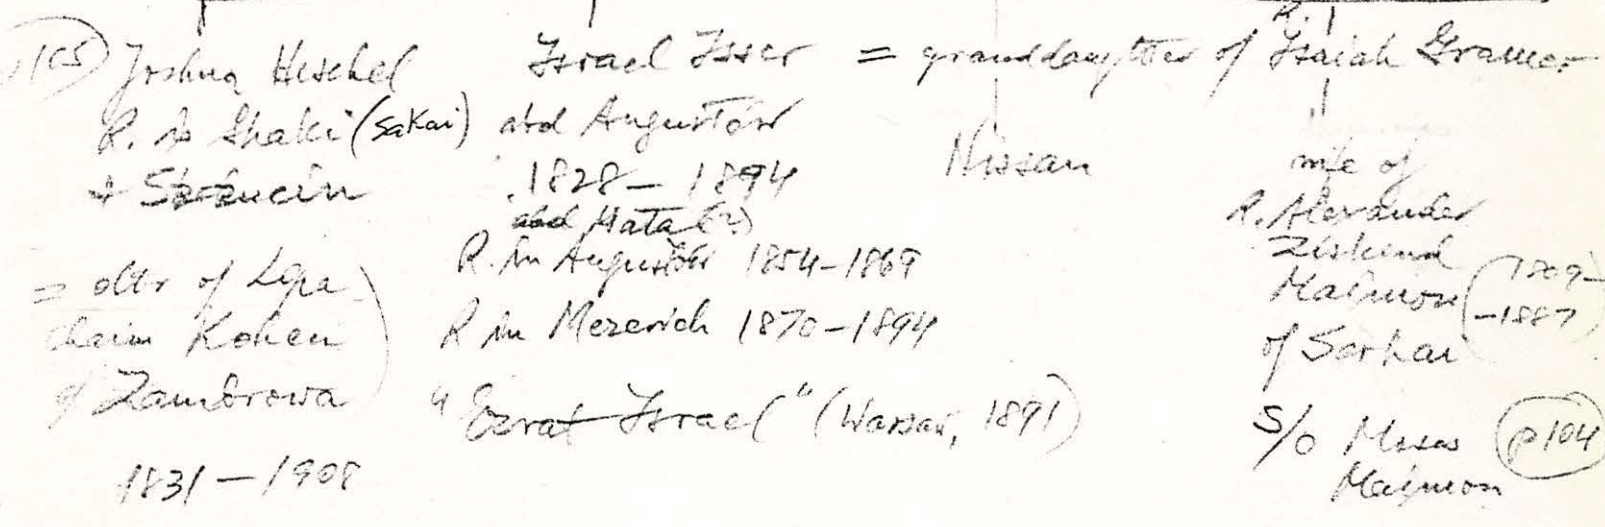 p105 Joshua Heschel
R. in Shaki (Sakai)
+ Szczucin
= dtr of Lipa
Chaim Kohen
of Zambrowa
1831 – 1908
Israel Isser = granddaughter of Isaiah
abd Augustów
1828 – 1894
abd Hata (?)
R. in Augustów 1854–1869
R in Mezerich 1870–1894
"Ezrat Israel" (Warsaw, 1891)
Nissan
R.
wife of
R. Alexander
Ziskind
Maimon (1809–
–1887)
of
S/o Moses p 104
Maimon